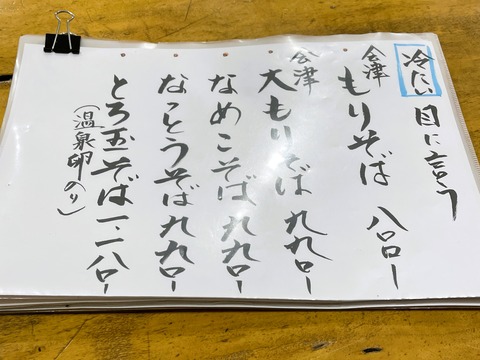 冷たい 目に言う
会津 もりそば 八〇〇ー
会津 大もりそば 九九〇ー
なめこそば 九九〇ー
なっとうそば 九九〇ー
とろ玉そば 一、一八〇ー
(温泉卵のり)